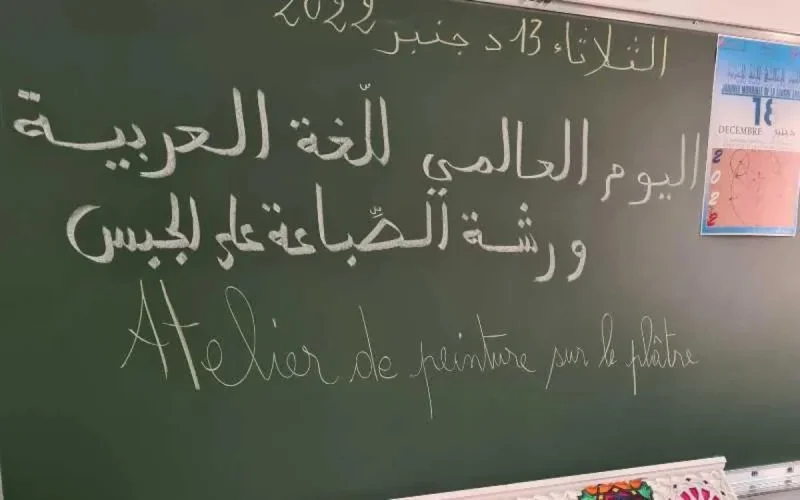 الثلاثاء 13 دجنبر 2022
اليوم العالمي للّغة العربية
ورشة الصّباغة على الجبس
Atelier de peinture sur le plâtre
JOURNÉE MONDIALE DE LA LANGUE
18
DECEMBRE دجنبر
2
0
2
2